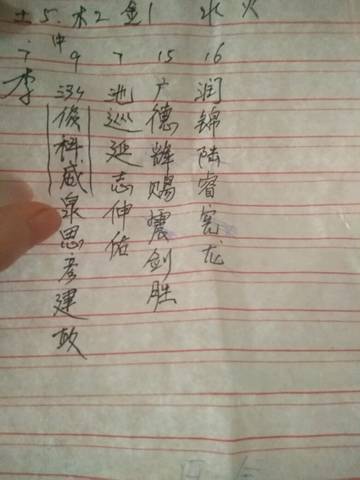 土5. 木2 金1 水 火
7 9 7 15 16
中
李
俊科威泉思彦建政
池巡延志伸佑
广德辉赐震剑胜
润锦陆睿宪龙